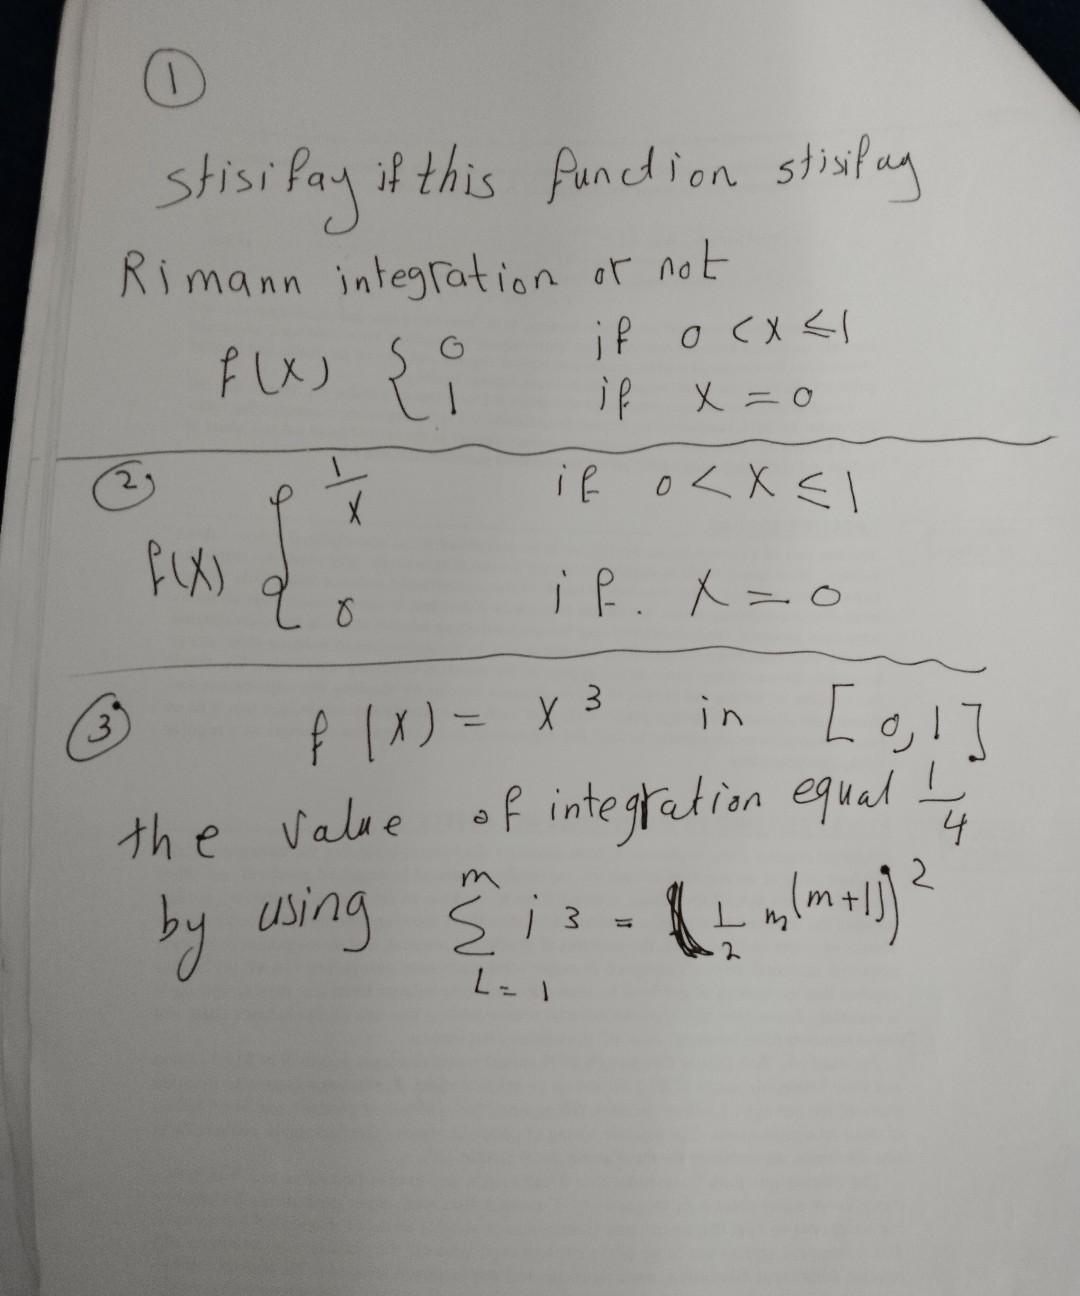 1
stisifay if this function stisifay
Rimann integration or not
f(x) { 0 if 0 < x ≤ 1
1 if x = 0
2
1/x if 0 < x ≤ 1
f(x) {
0 if. x = 0
3 f(x) = x³ in [0,1]
the value of integration equal 1/4
by using m Σ i=1 i³ = (1/2 m(m+1))²